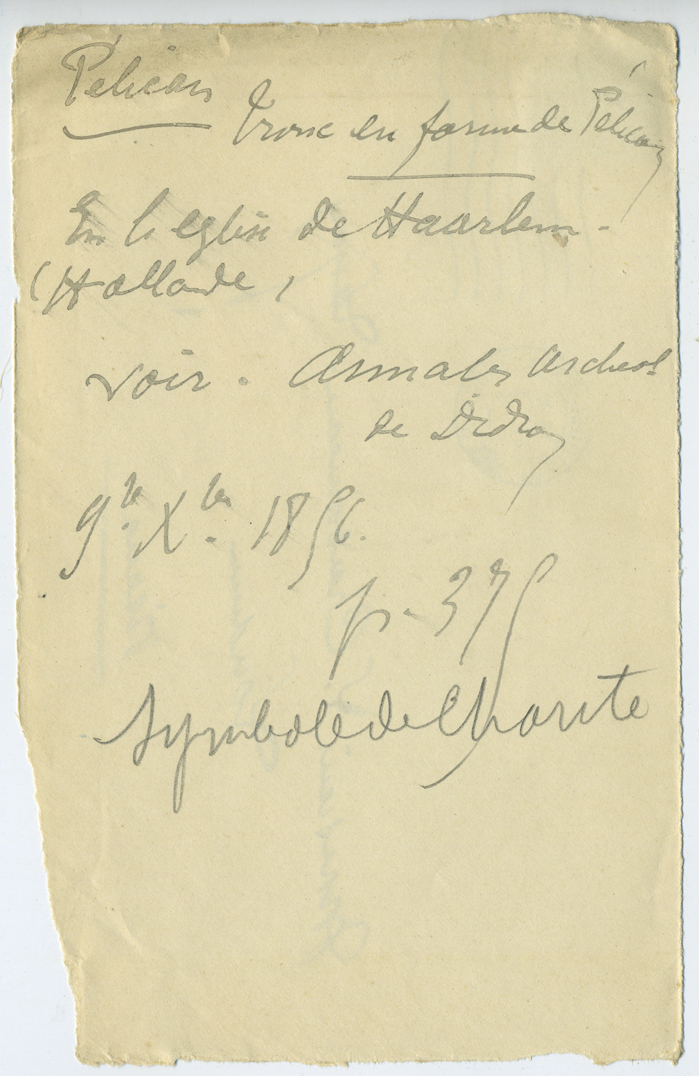 Pélican
Tronc en forme de Pélican
En l'église de Haarlem.
(Hollande)
voir. Annales Archeol
de Didron
9bre Xbre 1856.
p. 375
Symbole de Charite